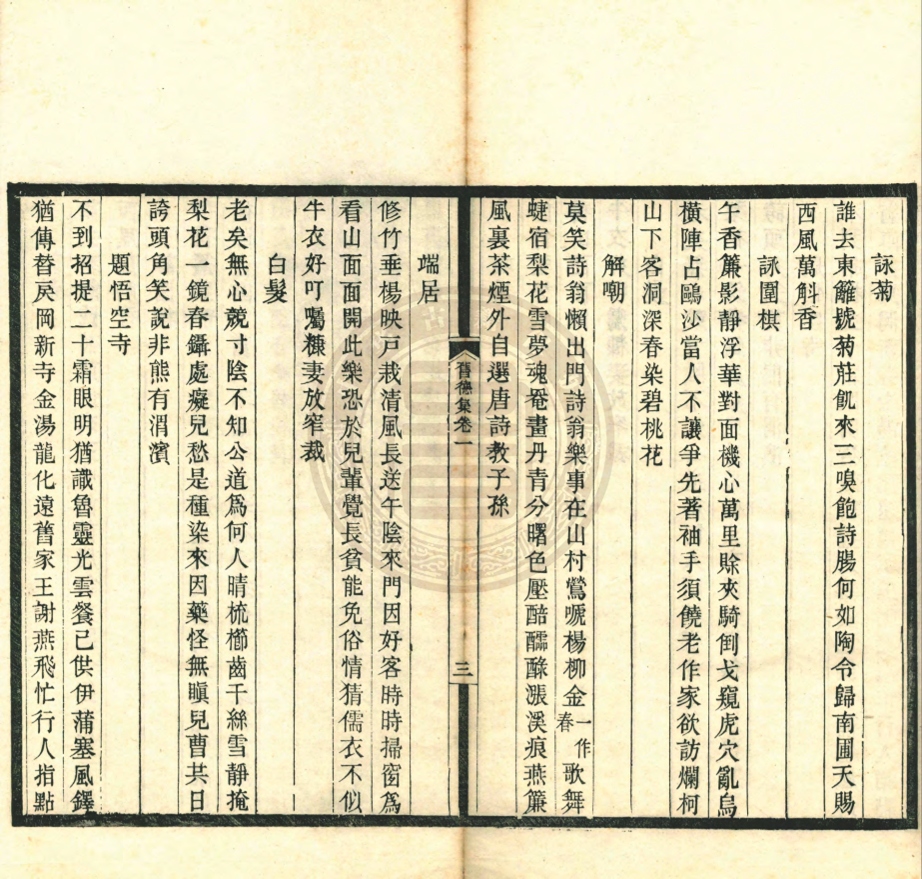 詠菊
誰去東籬掞菊莊飢來三嗅飽詩腸何如陶令歸南圃天賜
西風萬斛香
詠圍棋
午香簾影靜浮華對面機心萬里賒夾騎倒戈窺虎穴亂鳥
橫陣占鷗沙當人不讓爭先著袖手須饒老作家欲訪爛柯
山下客洞深春染碧桃花
解嘲
莫笑詩翁懶出門詩翁樂事在山村鶯嗁楊柳金一作春歌舞
蜨宿梨花雪夢魂罨畫丹青分曙色壓醅醽醁漲溪痕燕簾
風裏茶煙外自選唐詩教子孫
舊德集卷一
三
端居
修竹垂楊映戸栽清風長送午陰來門因好客時時掃窗爲
看山面面開此樂恐於兒輩覺長貧能免俗情猜儒衣不似
牛衣好叮囑糠妻放窄裁
白髮
老矣無心競寸陰不知公道爲何人晴梳櫛齒千絲雪靜掩
梨花一鏡春鑷處癡兒愁是種染來因藥怪無瞋兒曹共日
誇頭角笑說非熊有渭濱
題悟空寺
不到招提二十霜眼明猶識魯靈光雲餐已供伊蒲塞風鐸
猶傳替戾岡新寺金湯龍化遠舊家王謝燕飛忙行人指點